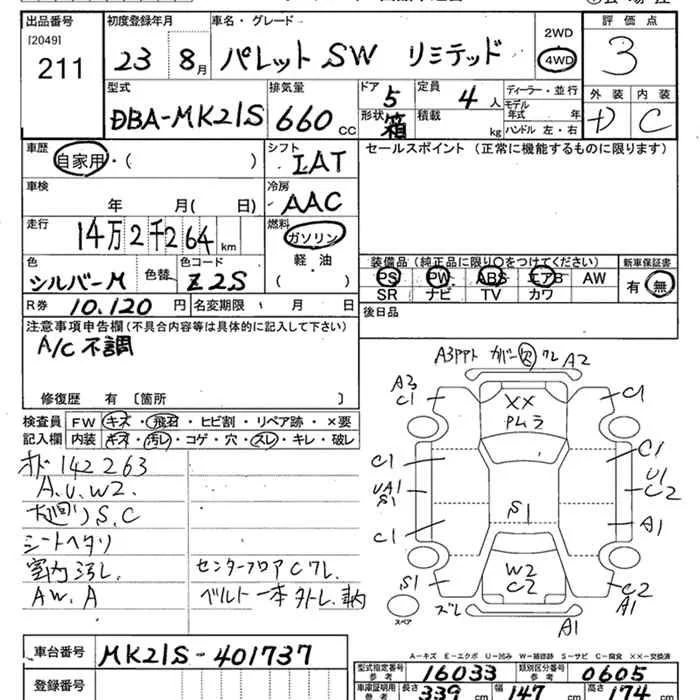 出品番号 初度登録年月 車名・グレード 2WD 4WD 評価点
[2049]
211 23 8月 パレット SW リミテッド 3
型式 排気量 ドア 定員 ディーラー・並行 外装 内装
DBA-MK21S 660cc 5 4人 モデル 年式 年 D C
形状 箱 積載 kg ハンドル 左・右
車歴 シフト セールスポイント (正常に機能するものに限ります)
自家用・( ) IAT
車検 冷房
年 月( 日) AAC
走行 燃料
14万2千264km ガソリン
色 色替 色コード 軽油
シルバーM Z2S ( )
装備品(純正品に限り○をつけてください) 新車保証書
PS PW ABS エアB AW 有・無
SR ナビ TV カワ
R券 10,120円 名変期限 月 日 後日品
注意事項申告欄(不具合内容等は具体的に記入して下さい)
A/C不調
修復歴 有 〔箇所 〕
検査員 FW キズ・飛石・ヒビ割・リペア跡・×要
記入欄 内装 キズ・汚レ・コゲ・穴・スレ・キレ・破レ
オド142263
A.U.W2.
下廻りS.C
シートヘタリ
室内汚レ. センターフロアCワレ.
AW.A ベルト一本外レ.車内
A3PPト カバー欠ワレ A2
A3
C1 XX C1
PMラ
C1 C1
UA1 U1
S1 S1 C2
C1 A1
W2
S1 C2 C2
A1
スペア ズレ A1
A-キズ E-エクボ U-凹み W-補修跡 S-サビ C-腐食 ××-交換済
車台番号 MK21S-401737
登録番号
型式指定番号 参考 16033 類別区分番号 参考 0605
車庫証明用 参考 長さ 339cm 幅 147cm 高さ 174cm